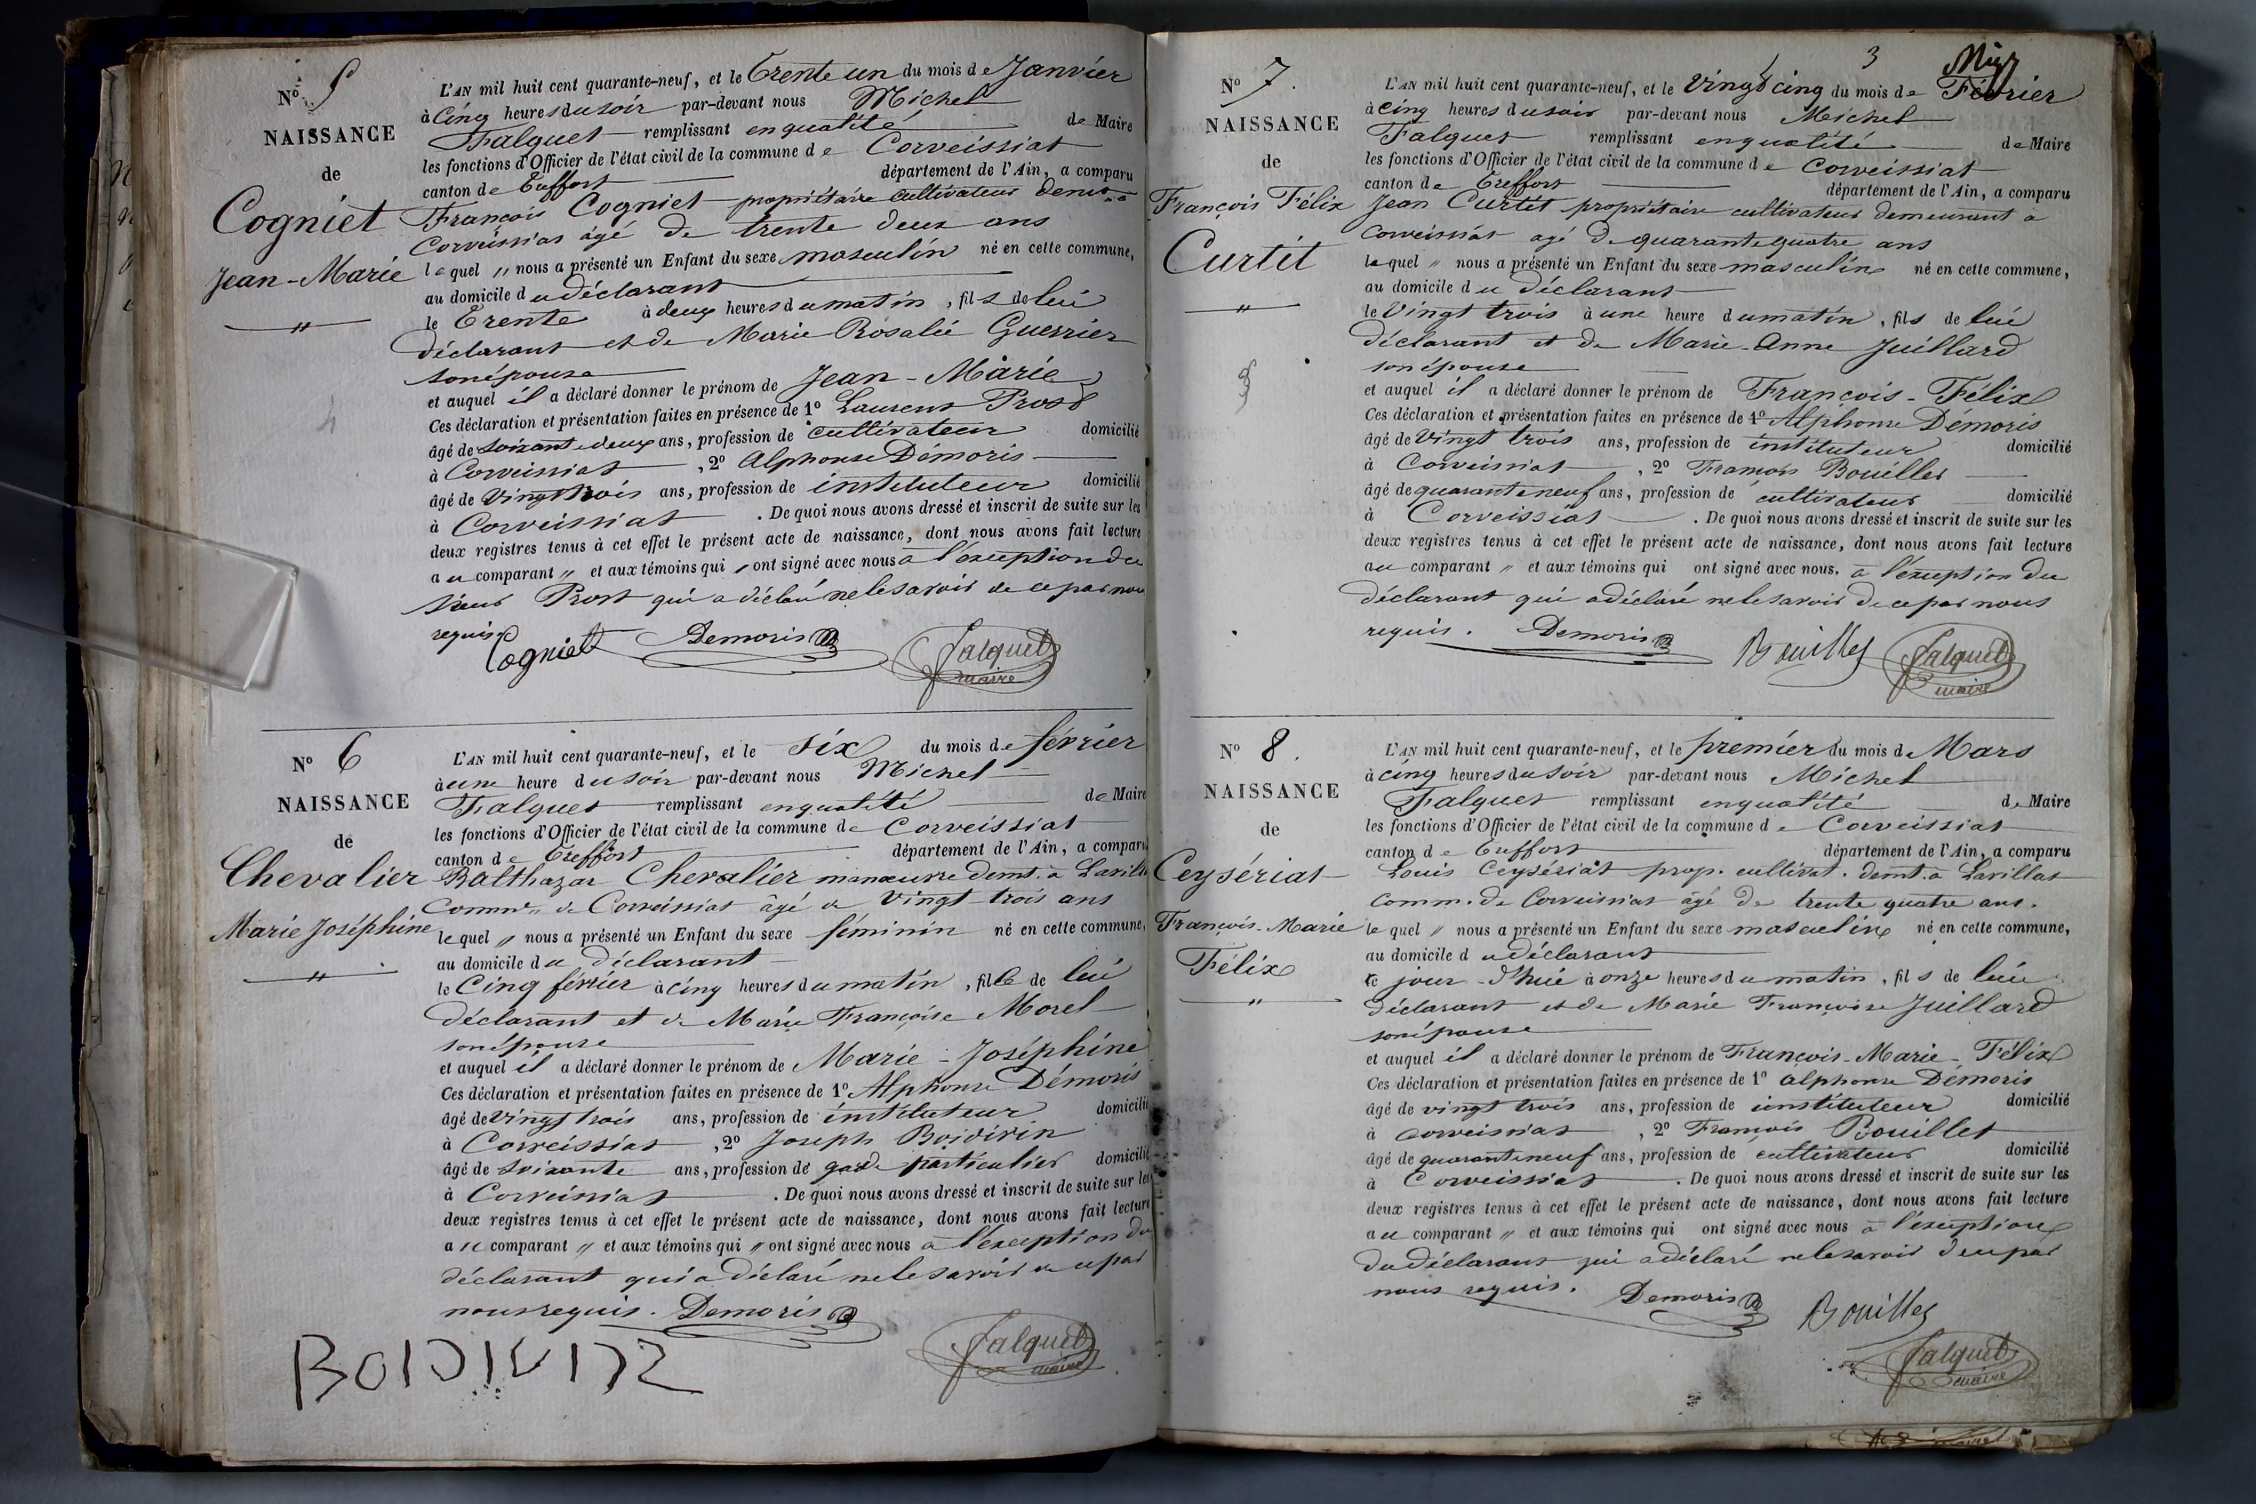 N° 5
NAISSANCE
de
Cogniet
Jean-Marie
L'AN mil huit cent quarante-neuf, et le Trente un du mois de Janvier
à Cinq heures du soir par-devant nous Michel
Falquet remplissant en qualité de Maire
les fonctions d'Officier de l'état civil de la commune de Corveissiat
canton de Treffort département de l'Ain, a comparu
François Cogniet propriétaire cultivateur demt. à
Corveissiat âgé de trente deux ans
lequel " nous a présenté un Enfant du sexe masculin né en cette commune,
au domicile du déclarant
le Trente à deux heures du matin, fils de lui
déclarant et de Marie Rosalie Guerrier
son épouse
et auquel il a déclaré donner le prénom de Jean-Marie
Ces déclaration et présentation faites en présence de 1° Laurent Prost
âgé de soixante deux ans, profession de cultivateur domicilié
à Corveissiat, 2° Alphonse Démoris
âgé de vingt trois ans, profession de instituteur domicilié
à Corveissiat. De quoi nous avons dressé et inscrit de suite sur les
deux registres tenus à cet effet le présent acte de naissance, dont nous avons fait lecture
au comparant " et aux témoins qui " ont signé avec nous à l'exception du
sieur Prost qui a déclaré ne le savoir de ce par nous
requis
Cogniet Demoris Falquet
maire
N° 6
NAISSANCE
de
Chevalier
Marie Joséphine
L'AN mil huit cent quarante-neuf, et le six du mois de février
à une heure du soir par-devant nous Michel
Falquet remplissant en qualité de Maire
les fonctions d'Officier de l'état civil de la commune de Corveissiat
canton de Treffort département de l'Ain, a comparu
Balthazar Chevalier manœuvre demt. à Lavillat
Commne de Corveissiat âgé de vingt-trois ans
lequel " nous a présenté un Enfant du sexe féminin né en cette commune,
au domicile du déclarant
le Cinq février à cinq heures du matin, fille de lui
déclarant et de Marie Françoise Morel
son épouse
et auquel il a déclaré donner le prénom de Marie-Joséphine
Ces déclaration et présentation faites en présence de 1° Alphonse Démoris
âgé de vingt trois ans, profession de instituteur domicilié
à Corveissiat, 2° Joseph Boidivin
âgé de soixante ans, profession de garde particulier domicilié
à Corveissiat. De quoi nous avons dressé et inscrit de suite sur les
deux registres tenus à cet effet le présent acte de naissance, dont nous avons fait lecture
au comparant " et aux témoins qui " ont signé avec nous à l'exception du
déclarant qui a déclaré ne le savoir de ce par
nous requis. Demoris
Falquet
maire
3
N° 7.
NAISSANCE
de
François Félix
Curtit
L'AN mil huit cent quarante-neuf, et le vingt cinq du mois de Février
à cinq heures du soir par-devant nous Michel
Falquet remplissant en qualité de Maire
les fonctions d'Officier de l'état civil de la commune de Corveissiat
canton de Treffort département de l'Ain, a comparu
Jean Curtit propriétaire cultivateur demeurant à
Corveissiat agé de quarante quatre ans
lequel " nous a présenté un Enfant du sexe masculin né en cette commune,
au domicile du déclarant
le Vingt trois à une heure du matin, fils de lui
déclarant et de Marie-Anne Juillard
son épouse
et auquel il a déclaré donner le prénom de François-Félix
Ces déclaration et présentation faites en présence de 1° Alphonse Démoris
âgé de vingt trois ans, profession de instituteur domicilié
à Corveissiat, 2° François Bouillet
âgé de quarante neuf ans, profession de cultivateur domicilié
à Corveissiat. De quoi nous avons dressé et inscrit de suite sur les
deux registres tenus à cet effet le présent acte de naissance, dont nous avons fait lecture
au comparant " et aux témoins qui ont signé avec nous, à l'exception du
déclarant qui a déclaré ne le savoir de ce par nous
requis. Demoris Bouillet Falquet
maire
N° 8.
NAISSANCE
de
Ceysériat
François-Marie
Félix
L'AN mil huit cent quarante-neuf, et le premier du mois de Mars
à cinq heures du soir par-devant nous Michel
Falquet remplissant en qualité de Maire
les fonctions d'Officier de l'état civil de la commune de Corveissiat
canton de Treffort département de l'Ain, a comparu
Louis Ceysériat prop. cultivat. demt. à Lavillat
Comm. de Corveissiat âgé de trente quatre ans.
lequel " nous a présenté un Enfant du sexe masculin né en cette commune,
au domicile du déclarant
ce jour-d'hui à onze heures du matin, fils de lui
déclarant et de Marie Françoise Juillard
son épouse
et auquel il a déclaré donner le prénom de François-Marie-Félix
Ces déclaration et présentation faites en présence de 1° Alphonse Démoris
âgé de vingt trois ans, profession de instituteur domicilié
à Corveissiat, 2° François Bouillet
âgé de quarante neuf ans, profession de cultivateur domicilié
à Corveissiat. De quoi nous avons dressé et inscrit de suite sur les
deux registres tenus à cet effet le présent acte de naissance, dont nous avons fait lecture
au comparant " et aux témoins qui ont signé avec nous à l'exception
du déclarant qui a déclaré ne le savoir de ce par
nous requis. Demoris Bouillet
Falquet
maire